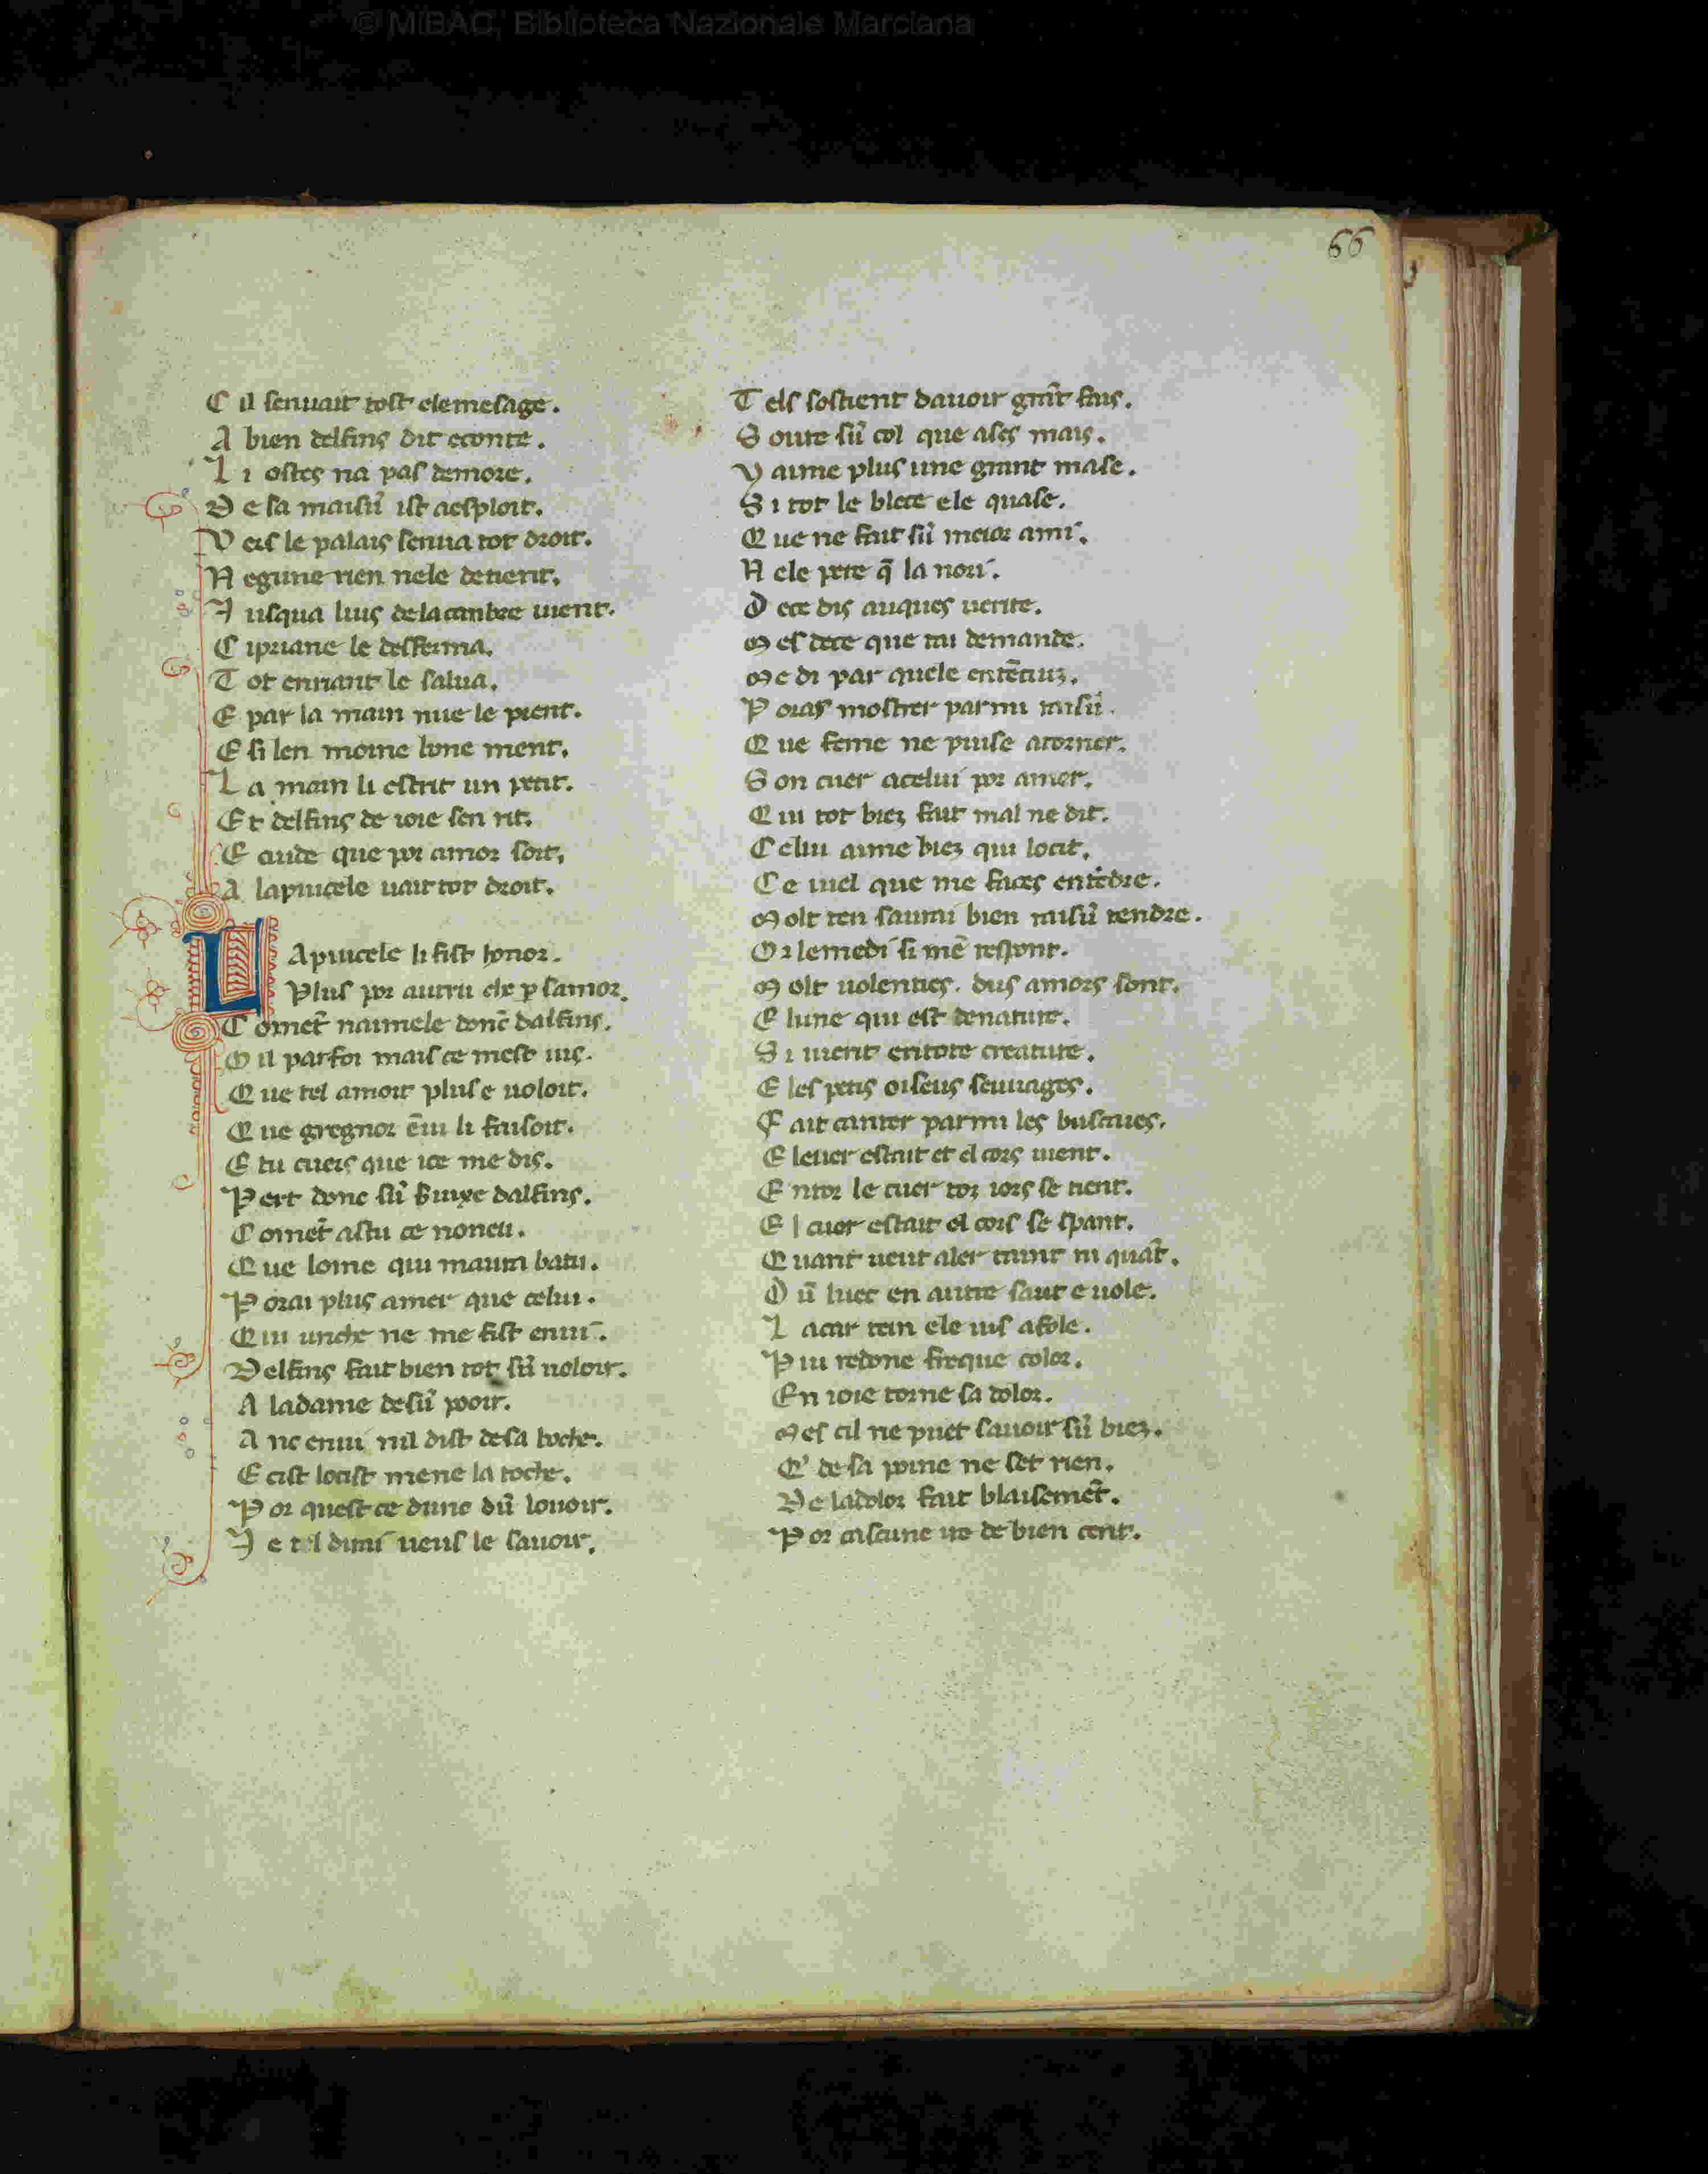 © MiBAC, Biblioteca Nazionale Marciana
66
C il senuait tost elemesage.
A bien delfins dit econte.
L i ostes na pas demore.
D e sa maisũ ist aesploit.
V ers le palais senua tot droit.
N egune rien nele detient.
J usqua luis delacanbre uient.
C ipriane le desferma.
T ot enriant le salua.
E par la main nue le prent.
E si len moine bone ment.
L a main li estrit un petit.
Et delfins de ioie sen rit.
E cuide que por amor soit.
A lapiucele uait tot droit.
L Apiucele li fist honor.
Plus por autrui che p samor.
Comẽt naimele donc dalfins.
O il parfoi mais ce mest uis.
Que tel amoit pluse uoloit.
Que gregnor ẽui li faisoit.
E tu cueis que ice me dis.
Pert donc sũ seruixe dalfins.
Comẽt astu ce noneu.
Que lome qui maura batu.
Porai plus amer que celui.
Qui unche ne me fist enui.
Delfins fait bien tot sũ uoloir.
A ladame desũ pooir.
A nc enui nil dist desa boche.
E cist locist mene la toche.
Por quest ce dunc dũ louoir.
J e tel dirai ueus le sauoir.
T els sostient dauoir grãt fais.
S oure sũ col que ases mais.
y aime plus une grant mase.
S i tot le blece ele quase.
Que ne fait sũ meior ami.
N ele pere q̃ la nori.
D ece dis auques uerite.
M es dece que tai demande.
M e di par quele entẽciuz.
Poras mostrer parmi raisũ.
Que feme ne puise atorner.
Son cuer acelui por amer.
Qui tot biez fait mal ne dit.
Celui aime biez qui locit.
Ce uiel que me faces entẽdre.
Molt ten saurai bien raisũ rendre.
Or lemedi si mẽ respont.
Molt uolenties. dus amors sont.
E lune qui est denature.
Si uient entote creature.
E les petis oiseus seuuages.
Fait canter parmi les buscaies.
E leuer estait et el cors uient.
Entor le cuer toz iors se tient.
El cuer estait el cors se spant.
Quant ueut aler tainr ni quãt.
Dũ luec en autre saut e uole.
L acar tein ele uis afole.
Pui redone freque color.
En ioie torne sa dolor.
Mes cil ne puet sauoir sũ biez.
E de sa poine ne set rien.
De ladolor fait blaisemẽt.
Por cascune uo de bien cent.